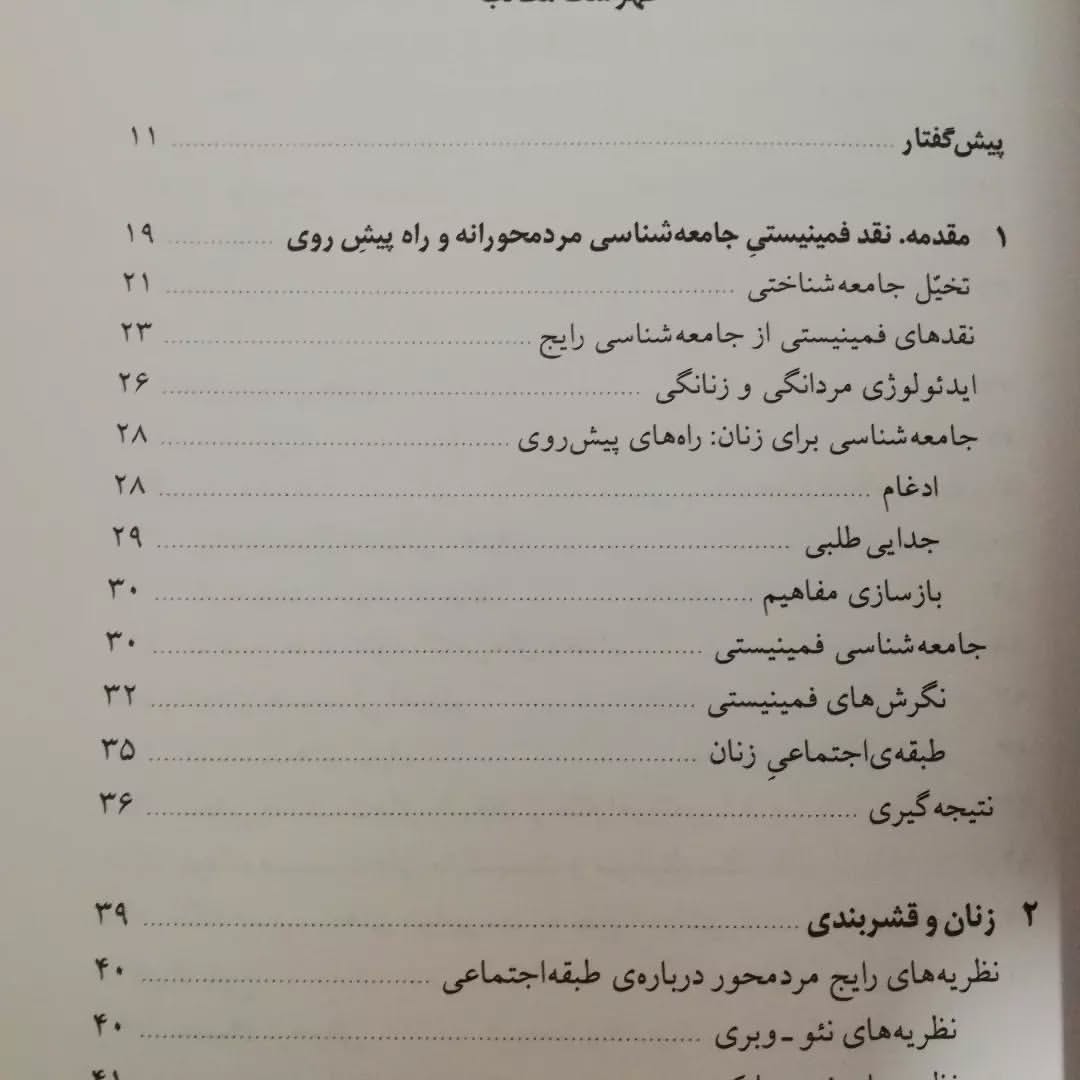 فهرست مطالب
پیش‌گفتار ........ ۱۱
۱ مقدمه. نقد فمینیستیِ جامعه‌شناسی مردمحورانه و راه پیشِ روی ........ ۱۹
تخیّل جامعه‌شناختی ........ ۲۱
نقدهای فمینیستی از جامعه‌شناسی رایج ........ ۲۳
ایدئولوژی مردانگی و زنانگی ........ ۲۶
جامعه‌شناسی برای زنان: راه‌های پیش‌روی ........ ۲۸
ادغام ........ ۲۸
جدایی طلبی ........ ۲۹
بازسازی مفاهیم ........ ۳۰
جامعه‌شناسی فمینیستی ........ ۳۰
نگرش‌های فمینیستی ........ ۳۲
طبقه‌ی‌اجتماعیِ زنان ........ ۳۵
نتیجه‌گیری ........ ۳۶
۲ زنان و قشربندی ........ ۳۹
نظریه‌های رایج مردمحور درباره‌ی طبقه‌اجتماعی ........ ۴۰
نظریه‌های نئو ـ وبری ........ ۴۰
۴۱